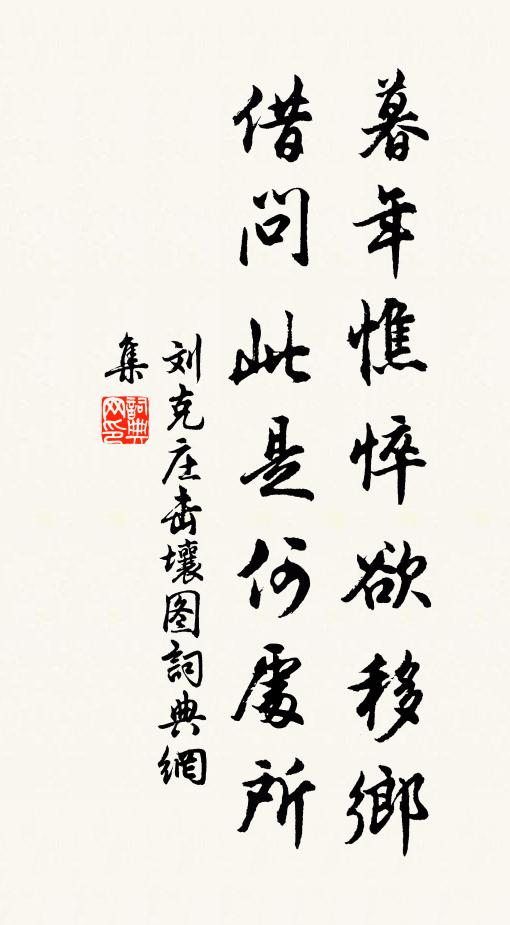 暮年憔悴欲移鄉
借問此是何處所
刘克庄击壤图詞典網
集
詞典网印